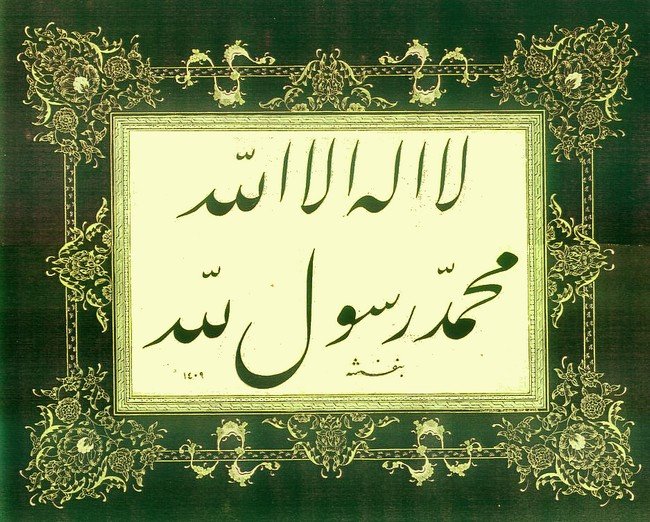 لا اله الا اللّه
محمّد رسول للّه
بنفشه
١٤٠٩